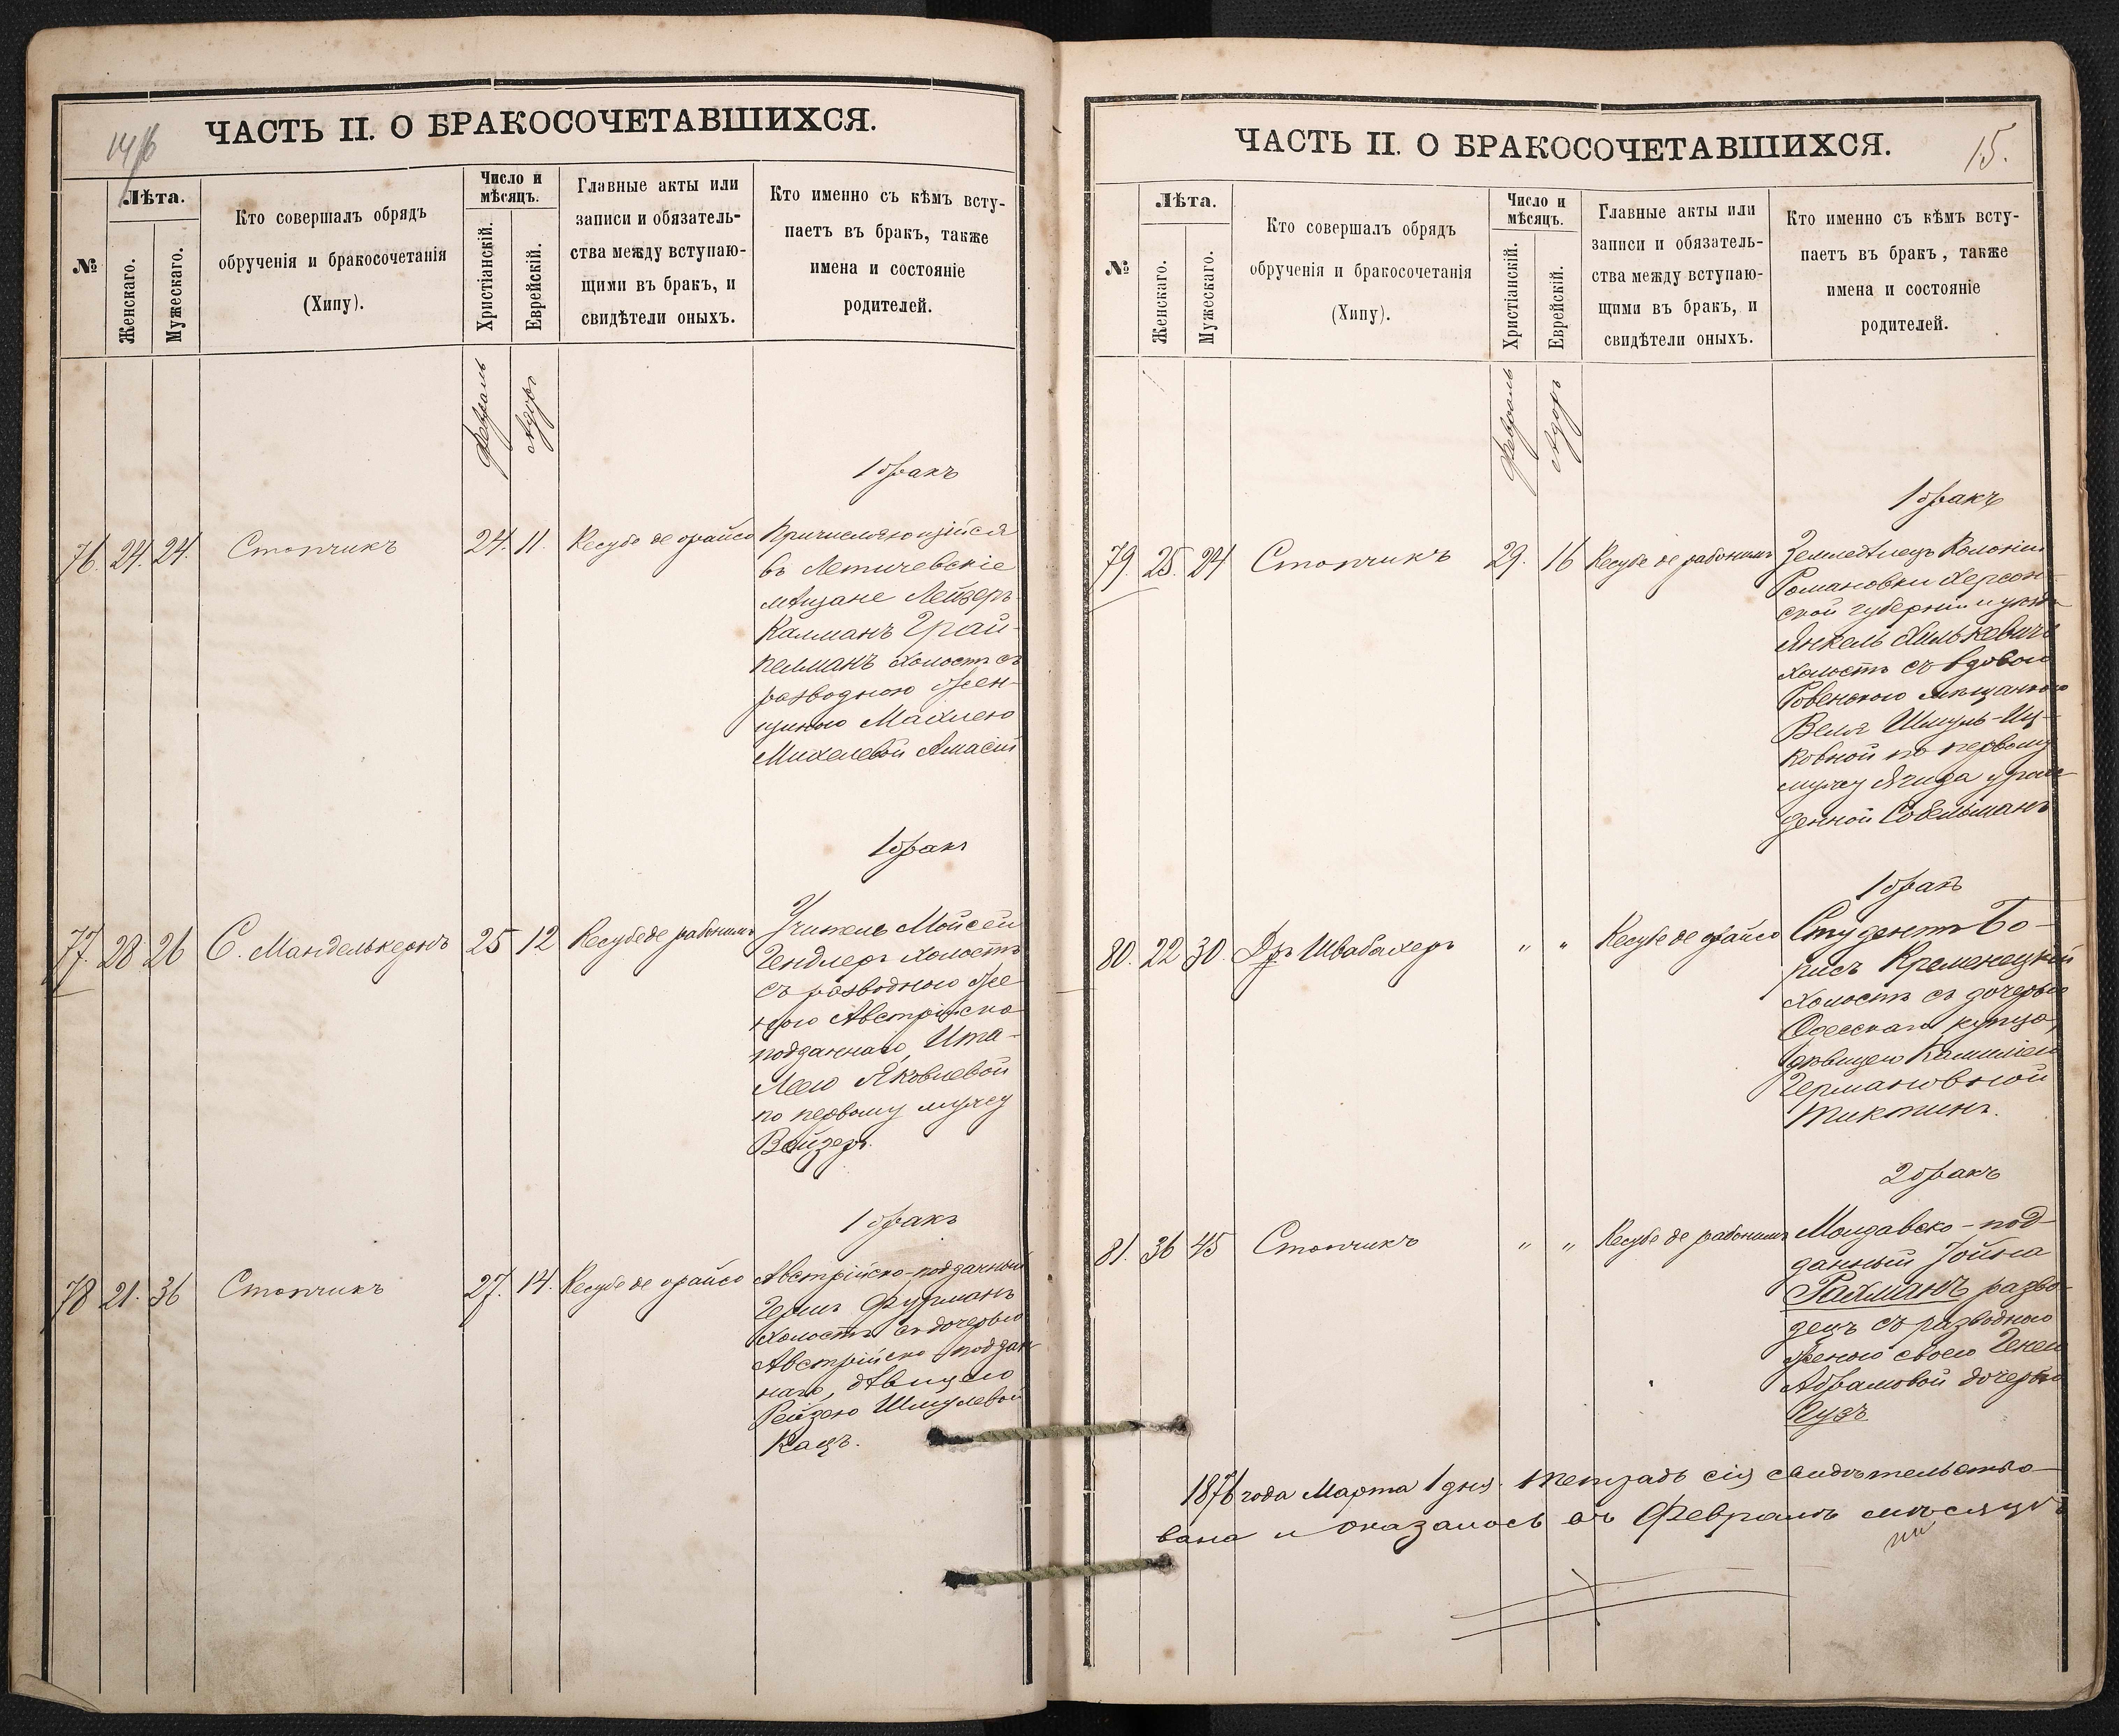 14
ЧАСТЬ II. О БРАКОСОЧЕТАВШИХСЯ.
№
Лѣта.
Женскаго.
Мужескаго.
Кто совершалъ обрядъ
обрученія и бракосочетанія
(Хипу).
Число и
мѣсяцъ.
Христіанскій.
Еврейскій.
Главные акты или
записи и обязатель-
ства между вступаю-
щими въ бракъ, и
свидѣтели оныхъ.
Кто именно съ кѣмъ всту-
паетъ въ бракъ, также
имена и состояніе
родителей.
Февраль
Адаръ
1 бракъ
76. 24. 24. Стопчикъ 24. 11. Кесубе де орайсо
Причисляющійся
въ Летичевскіе
мѣщане Лейзеръ
Калманъ Грай-
пелманъ холостъ съ
разводною жен-
щиною Махлею
Михелевой
1 бракъ
77. 28 26 С. Манделькернъ 25 12 Кесубе де рабонимъ
Учитель Мойсей
Гендлеръ холостъ
съ разводною же
ною Австрійско
подданнаго, Ита-
Леею Яковлевой
по первому мужу
Вейзеръ.
1 бракъ
78 21. 36 Стопчикъ 27. 14. Кесубе де орайсо
Австрійско-подданный
Гершъ Фурманъ
холостъ съ дочерью
Австрійско-поддан
наго, дѣвицею
Рейзею Шмулевой
Кацъ.
ЧАСТЬ II. О БРАКОСОЧЕТАВШИХСЯ.
15.
№
Лѣта.
Женскаго.
Мужескаго.
Кто совершалъ обрядъ
обрученія и бракосочетанія
(Хипу).
Число и
мѣсяцъ.
Христіанскій.
Еврейскій.
Главные акты или
записи и обязатель-
ства между вступаю-
щими въ бракъ, и
свидѣтели оныхъ.
Кто именно съ кѣмъ всту-
паетъ въ бракъ, также
имена и состояніе
родителей.
Февраль
Адаръ
1 бракъ
79. 25. 24 Стопчикъ 29. 16 Кесубе де рабонимъ
Земледѣлецъ Колоніи
Романовки Херсон-
ской губерніи и уѣзда
Янкель Хилькевичъ
холостъ съ вдовою
Ровенскою мѣщанкою
Веля Шмуль-Иц-
ковной по первому
мужу Ягида урож
денной Собельманъ
1 бракъ
80. 22 30. Д-ръ Швабахеръ " " Кесубе де орайсо
Студентъ Бо-
рисъ Кременецкій
холостъ съ дочерью
Одесскаго купца,
дѣвицею Камиліею
Германовной
Тиктинъ.
2 бракъ
81. 36 45 Стопчикъ " " Кесубе де рабонимъ
Молдавско-под-
данный Йойна
Рахманъ разво-
децъ съ разводною
женою своею Генею
Абрамовой дочерью
Пузъ
1876 года Марта 1 дня. Тетрадь сія свидѣтельство-
вана и оказалось въ Февралѣ мѣсяцѣ